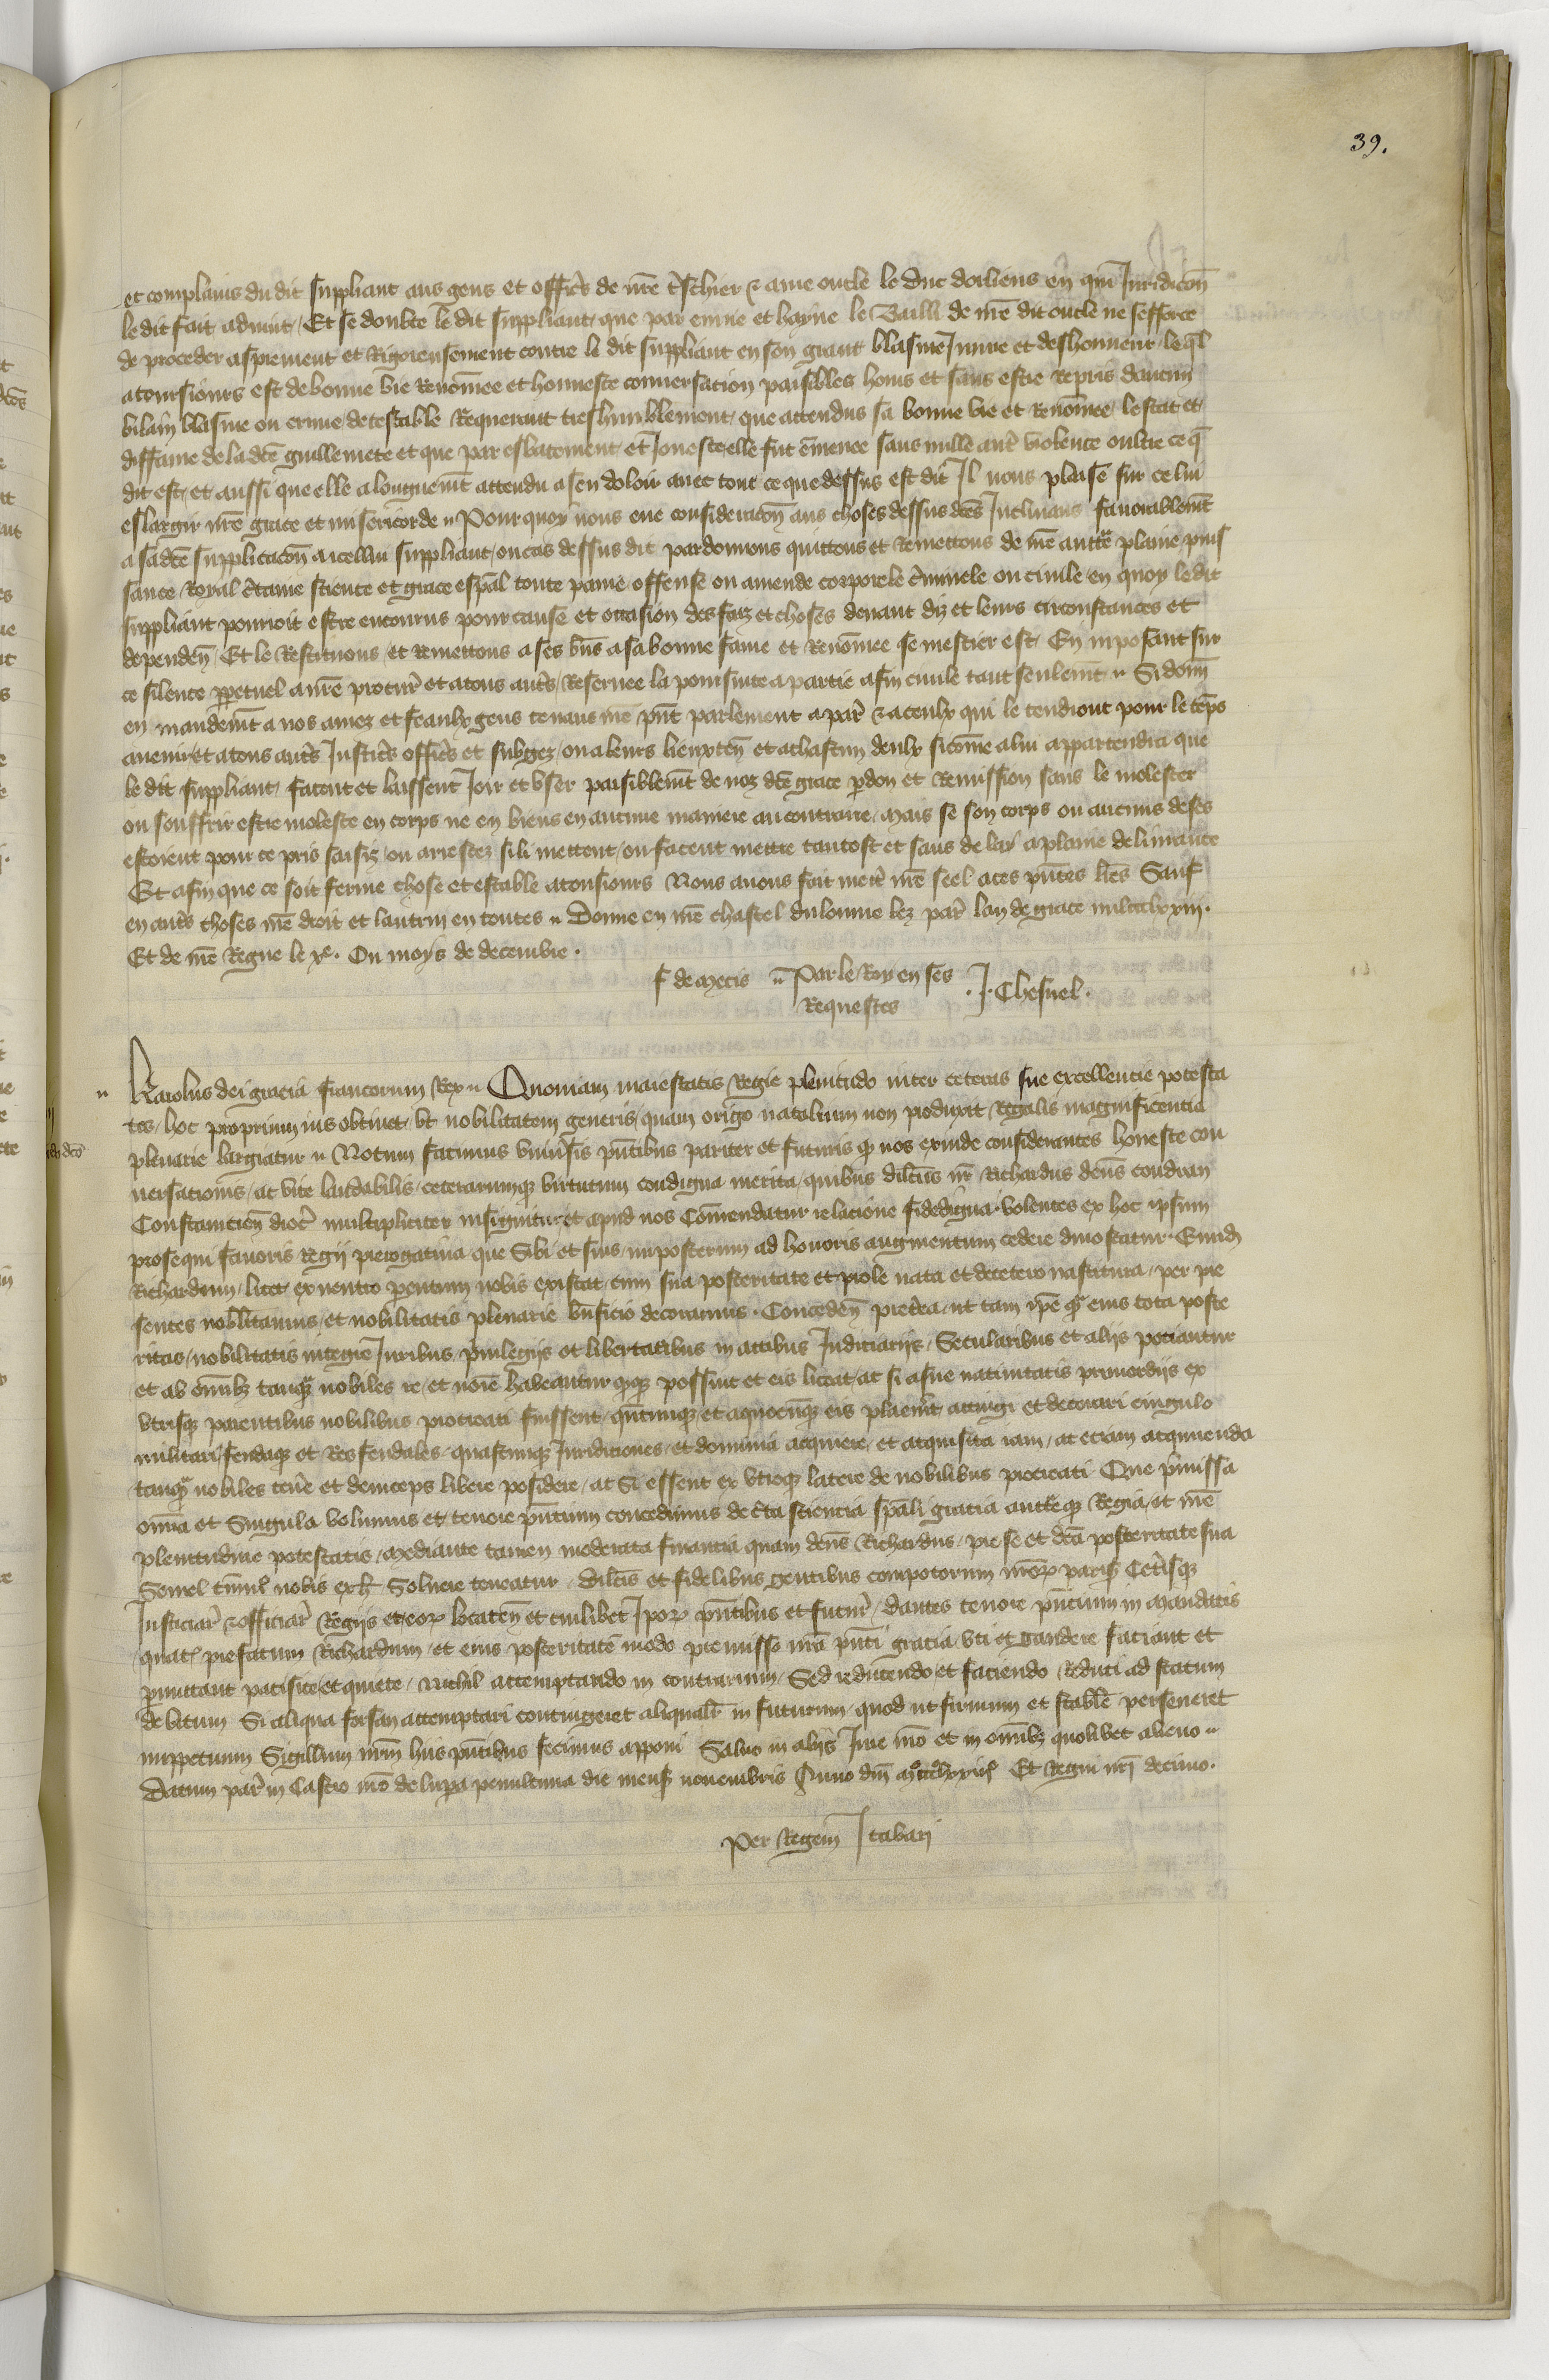 39.
et complains du dit suppliant aus gens et offics de nre tschier & ame oncle le duc dorliens en qui Juridicon
le dit fait advint / Et se doubte le dit suppliant que par envie et hayne le Bailli de nre dit oncle ne sefforce
de proceder asprement et Rigoreusement contre le dit suppliant en son grant blasme Iniure et deshonneur leql
a tousiours este de bonne vie Renommee et honneste conversation paisibles homs et sans estre Repris daucun
vilain blasme ou crime detestable Requerant tres humblement que attendus sa bonne vie et Renomee lestat et
diffame de la dce guillemete et que par esbatement et Jonesce elle fut emenee sans nulle autre violence oultre ce q
dit est, et aussi que elle a longuemt attendu a sen doloir avec tout ce que dessus est dit Il nous plaise sur ce lui
eslargir nre grace et misericorde Pourquoy nous eue consideracon aus choses dessus dces Inclinans favorablemt
a sa dce supplicacon a icellui suppliant ou cas dessus dit pardonnons quittons et Remettons de nre auttе plaine puis
sance Royal ctaine science et grace espal toute paine offense ou amende corporele cminele ou civile en quoy le dit
suppliant pourroit estre encourus pour cause et occasion des faiz et choses devant diz et leurs circonstances et
dependen Et le Restituons et Remettons a ses bns a sa bonne fame et Renomee se mestier est En imposant sur
ce silence ppetuel a nre procur et a tous auts Reservee la poursuite a partie a fin civile tant seulemt Si donn
en mandemt a nos amez et feaulx gens tenans nre pnt parlement a par & a ceulx qui le tendront pour le teps
avenir et a tous auts Justics offics et subgez / ou a leurs lieuxten et a chascun deulx sicome a lui appartendra que
le dit suppliant facent et laissent Joir et user paisiblemt de noz dce grace pdon et Remission sans le molester
ou souffrir estre moleste en corps ne en biens en aucune maniere au contraire, Mais se son corps ou aucuns de ses
estoient pour ce pris saisiz ou arrestez si li mettent ou facent mettre tantost et sans delay a plaine delivrance
Et afin que ce soit ferme chose et estable a tousiours Nous avons fait mett nre seel a ces pntes lres Sauf
en auts choses nre droit et lautrui en toutes Donne en nre chastel du louvre lez par lan de grace mil ccclxxiii.
Et de nre Regne le xe. Ou moys de decembre.
f de Mecis Par le Roy en ses
Requestes
. J. Chesnel.
Karolus dei gracia francorum Rex Quoniam maiestatis Regie plenitudo inter ceteras sue excellencie potesta
tes, hoc proprium ius obtinet, ut nobilitatem generis, quam origo natalium non produxit Regalis magnificencia
plenarie largiatur Notum facimus univsis pntibus pariter et futuris q nos exinde considerantes honeste con
versationis, ac vite laudabilis, ceterarumq virtutum condigna merita, quibus dilcus nr Richardus dcus condran
Constancien dioc multipliciter insignitur, et apud nos Comendatur relacione fidedigna, volentes ex hoc ipsum
prosequi favoris Regij prerogativa que Sibi et suis imposterum ad honoris augmentum cedere dinoscatur. Eundem
Richardum licet ex neutro pentum nobis existat, cum sua posteritate et prole nata et decetero nascitura per pre
sentes nobilitamus, et nobilitatis plenarie bnficio decoramus. Conceden pretea, ut tam ipe q eius tota poste
ritas, nobilitatis integre Juribus, privilegijs et libertatibus in actibus Judiciarijs Secularibus et alijs potiantur
et ab omibz tanq nobiles re et noie habeantur qq possint et eis liceat, ac si a sue nativitatis primordijs ex
utrisq parentibus nobilibus procreati fuissent, quntumq et a quocumq eis placuerit accingi et decorari cingulo
militari, feudaq et Res feudales, quascumq Juridiciones, et dominia acquirere, et acquisita iam, ac eciam acquirenda
tanq nobiles tenere et deinceps libere posidere, ac Si essent ex utroq latere de nobilibus procreati Que pmissa
omia et Singula volumus et tenore pncium concedimus de cta sciencia spali gracia aucteq Regia, et nre
plenitudine potestatis, Mediante tamen moderata financia quam dcus Richardus, pre se et dca posteritate sua
Semel tmm nobis exh Solvere teneatur. dilcis et fidelibus gentibus compotorum nror paris Ceterisq
Justiciar & officiar Regijs et eor locaten et cuilibet Ipor pntibus et futur, dantes tenore pncium in Mandatis
quat prefatum Richardum, et eius posteritate modo premisso nra pnti gracia, uti et gaudere faciant et
pmittant pacifice et quiete, Nichil attemptando in contrarium, Sed reducendo et faciendo Reduci ad statum
debitum Si aliqua forsan attemptari contingeret aliqualr in futurum, quod ut firmum et stabile perseveret
inppetuum Sigillum nrm hiis pntibus fecimus apponi Salvo in alijs Jure nro et in omibz quolibet alieno
Datum par in Castro nro de lupa penultima die mens novembris Anno dni Mo cccmo lxxiijo Et Regni nri decimo.
Per Regem J tabari